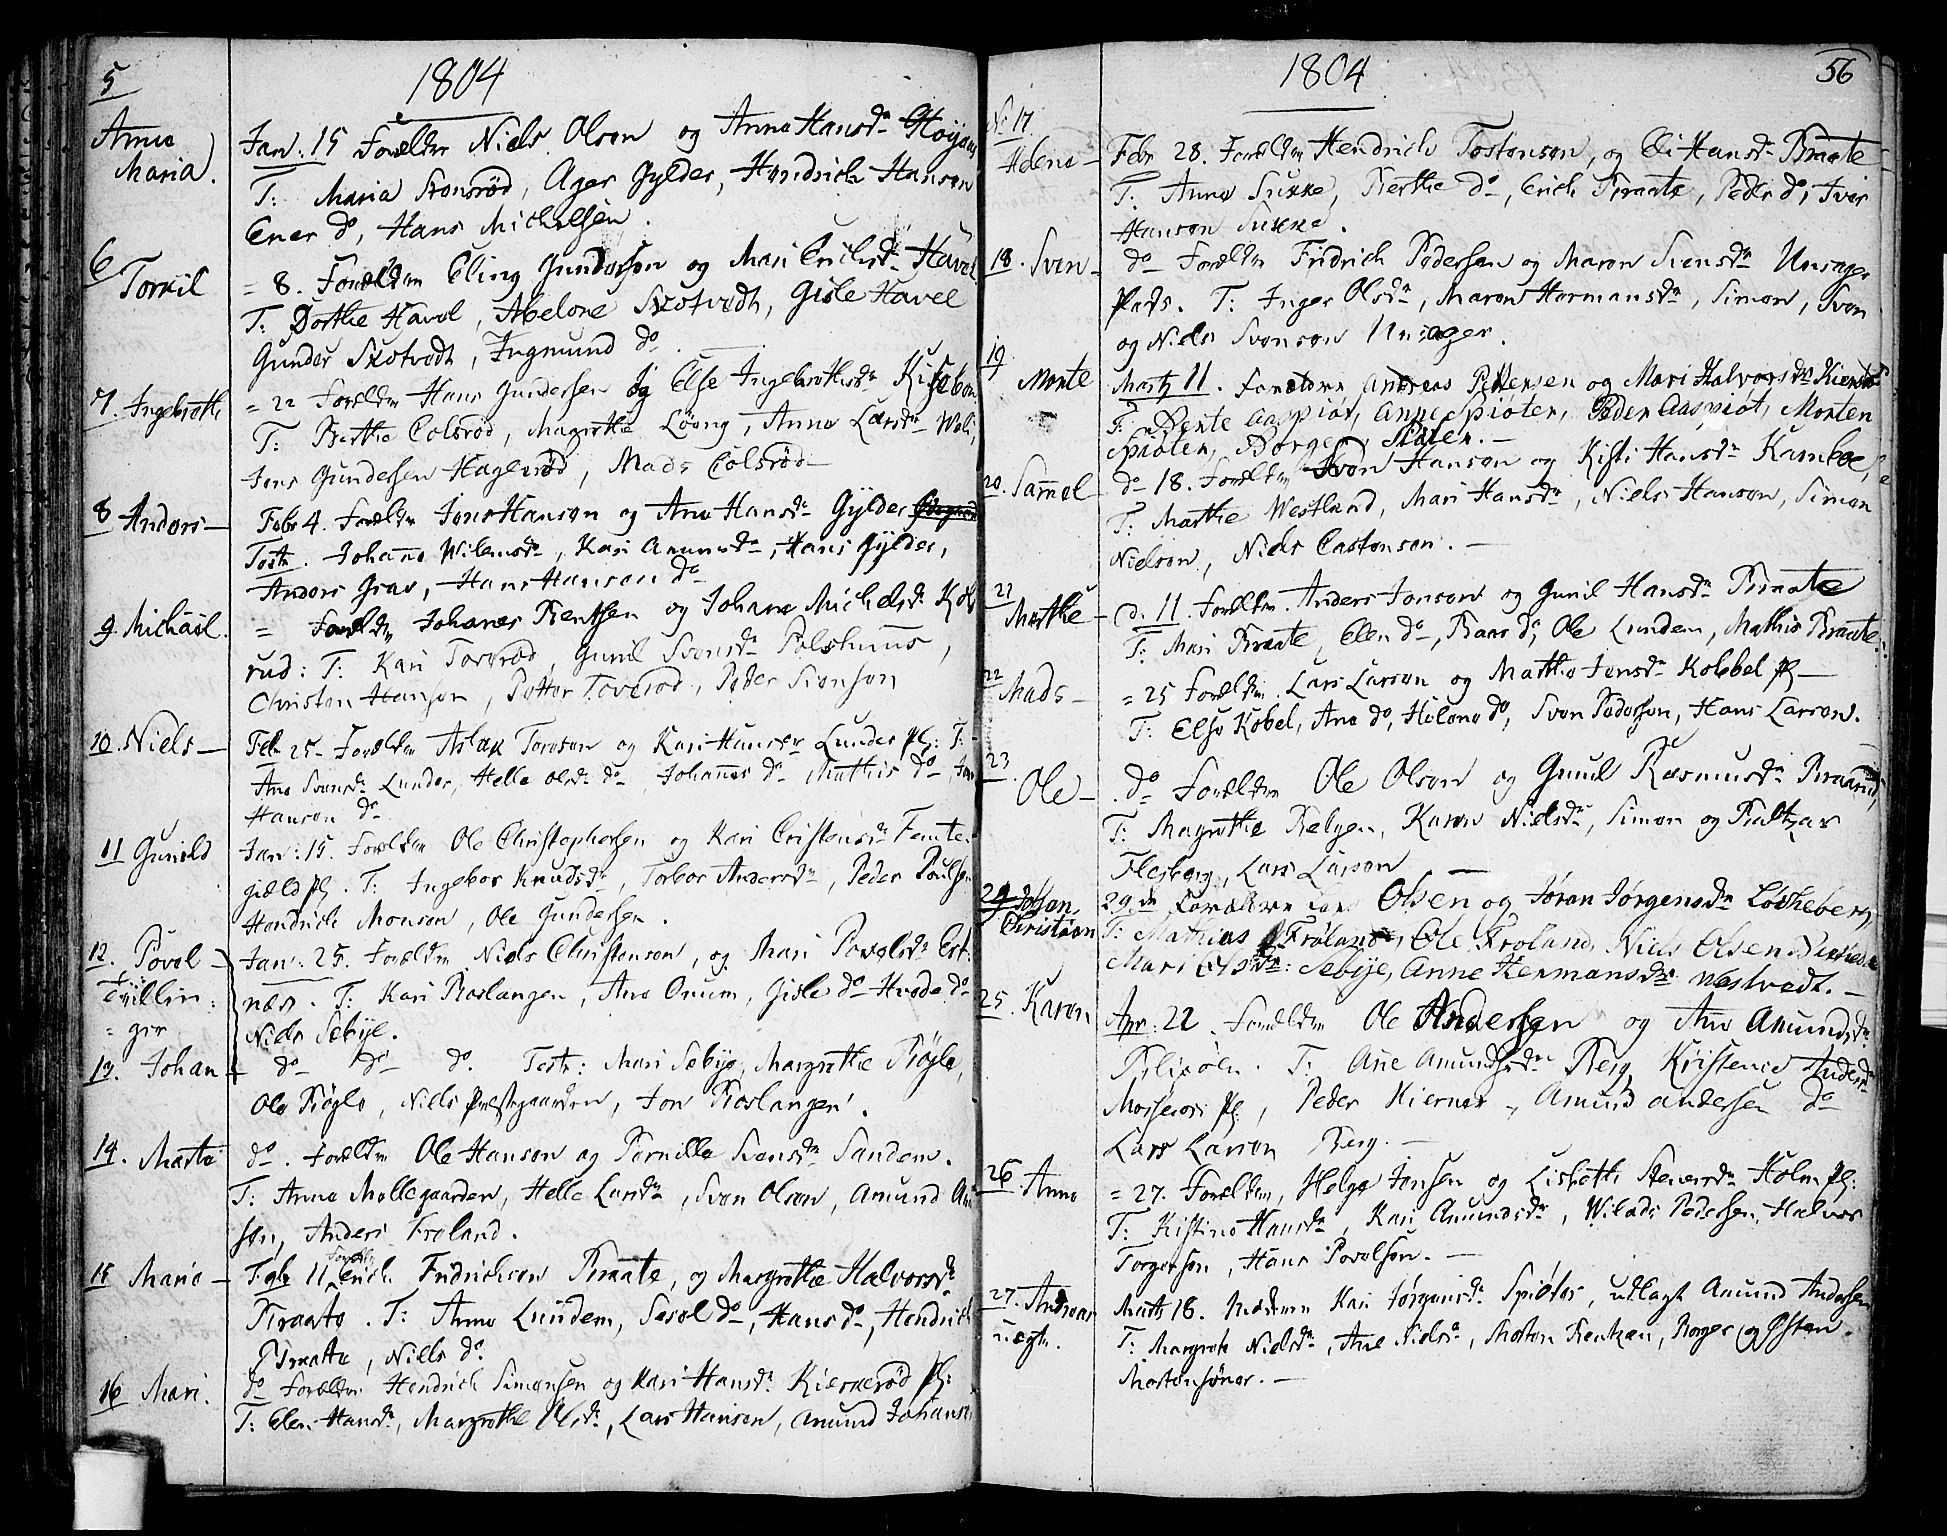 1804
5
Anne Maria. Jan: 15 Forældre Niels Olson og Anne Hansdr
T: Maria Stensrød, Ager Gylder, Hendrich Hanson
Ener do, Hans Michelsen.
6 Torkil = 8. Forældre Elling Gunderson og Mari Erichsdr Havel
T: Dorthe Havel, Abelone Skotvedt, Gisle Havel
Gunder Skotvedt, Ingmund do
7. Ingebrethe = 22 Forældre Hans Gundersen og Else Ingebrethsdr
T: Berthe Colsrød, Magrethe Løvng, Anne Larsdr
Jens Gundersen Hagensrød, Mads Colsrød
8 Anders Febr 4. Forældre Jens Hanson og Ane Hansdr Gylder
Testr. Johane Wilemsdr, Kari Amunsdr, Hans Gylder,
Anders Grav, Hans Hanson do
9. Michael. = Forældre Johanes Bentsen og Johane Michelsdr Kols
rud: T: Kari Torsrød, Gunil Svensdr Polshuus,
Christen Hanson, Petter Toverød, Peder Svenson
10. Niels Feb 25 Forældre Aslak Toreson og Kari Hansdr Lunder pl: T:
Ane Svensdr Lunder, Helle Olsdr do, Johannes do Mathis do
Hanson do
11 Gunild Jan: 15. Forældre Ole Christophersen og Kari Cristensdr Femte
gield pl. T: Ingebor Knudsdr, Torbor Andersdr, Peder Poulsen
Hendrich Monsen, Ole Gundersen.
12. Povel Jan: 25. Forældre Niels Christenson, og Mari Povelsdr Est-
Tvillin: næs. T: Kari Roslangen, Ane Onum, Gisle do Hvede do
= ger Niels Sebye.
13. Johan do do do. Testr: Mari Sebye, Margrethe Bøgle,
Ole Bøgle, Niels Præstegaarden, Jon Roslangen.
14. Marte do. Forældre Ole Hanson og Pernille Svensdr Sandem.
T: Anne Møllegaarden, Helle Larsdr, Sven Olson, Amund
søn, Anders Froland.
15 Marie Febr 11 Forældre Erich Fridrichson Braate, og Margrethe Halvorsdr
Braate. T: Anne Lundem, Sesel do, Hans do, Hendrich
Braate, Niels do
16 Mari. do Forældre Hendrich Simonsen og Kari Hansdr Kierserød pl:
T: Elen Hansdr, Margrethe Olsdr, Lars Hansen, Amund
1804
56
No 17.
Helene Febr 28. Forældre Hendrich Tostenson, og Eli Hansdr Braate
T: Anne Sukke, Berthe do, Erich Braate, Peder do, Iver
Hanson Sukke.
18. Sven do Forældre Fridrich Pedersen og Maren Svensdr Unsager
Pads. T: Inger Olsdr, Maren Hermansdr, Simon, Sven
og Niels Svenson Unsager.
19
Morte Martz 11. Forældre Andreas Pettersen og Mari Halvorsdr
T: Dorte Aaspiøt, Anne Spioten, Peder Aaspiøt, Morten
Spioten, Borger
20. Samel do 18. Forældre Sven Hanson og Kisti Hansdr Kamboe,
T: Marthe Westland, Mari Hansdr, Niels Hanson, Simon
Nielson, Niels Castenson.
21
Marthe d. 11. Forældre Anders Jonson og Gunil Hansdr Braate
T: Mari Braate, Elen do, Baar do, Ole Lundem, Mathis Braate
22
Mads = 25 Forældre Lars Larson og Marthe Jensdr Kobbel pl
T: Else Kobel, Ane do, Helene do, Sven Pederson, Hans Larson.
23.
Ole do Forældre Ole Olson og Gunil Rasmusdr Braarud,
T: Magrethe Relgen, Karen Nielsdr, Simon og Baltzar
Flesberg, Lars Larson
24 Johan Christian 29de Forældre Lars Olsen og Jøran Jørgensdr Løcheberg
T: Mathias Frøland, Ole Froland, Niels Olsen
Mari Olsdr: Sebije, Anne Hermansdr Westvedt.
25. Karen Apr: 22. Forældre Ole Andersen og Ane Amundsdr
T: Ane Amundsdr Berg, Kristense Andersdr
pl:, Peder Kierner, Amund Andersen do
Lars Larson Berg.
26 Anne = 27. Forældre, Helge Jonsen og Lisbeth Stenersdr Holm pl:
T: Kistine Hansdr, Kari Amundsdr, Wilads Pedersen, Halvor
Torgerson, Hans Povelson.
27. Andreas Marts 18. Moderen Kari Jørgensdr Spioter, udlagt Amund Andersen
uægte. T: Margrete Nielsdr, Ane Nielsdr, Morten Bentzen, Borger og Østen
Mortensøner.